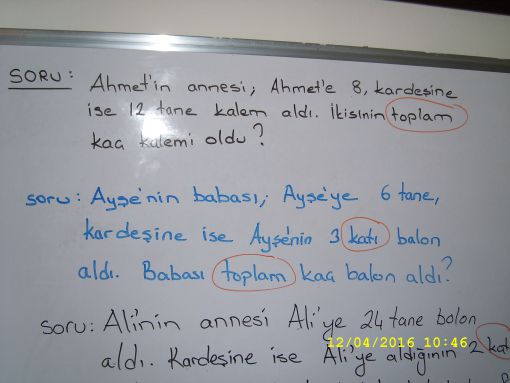 SORU: Ahmet'in annesi, Ahmet'e 8, kardeşine
ise 12 tane kalem aldı. İkisinin toplam
kaç kalemi oldu?
soru: Ayşe'nin babası, Ayşe'ye 6 tane,
kardeşine ise Ayşe'nin 3 katı balon
aldı. Babası toplam kaç balon aldı?
soru: Ali'nin annesi Ali'ye 24 tane balon
aldı. Kardeşine ise Ali'ye aldığının 2
12/04/2016 10:46